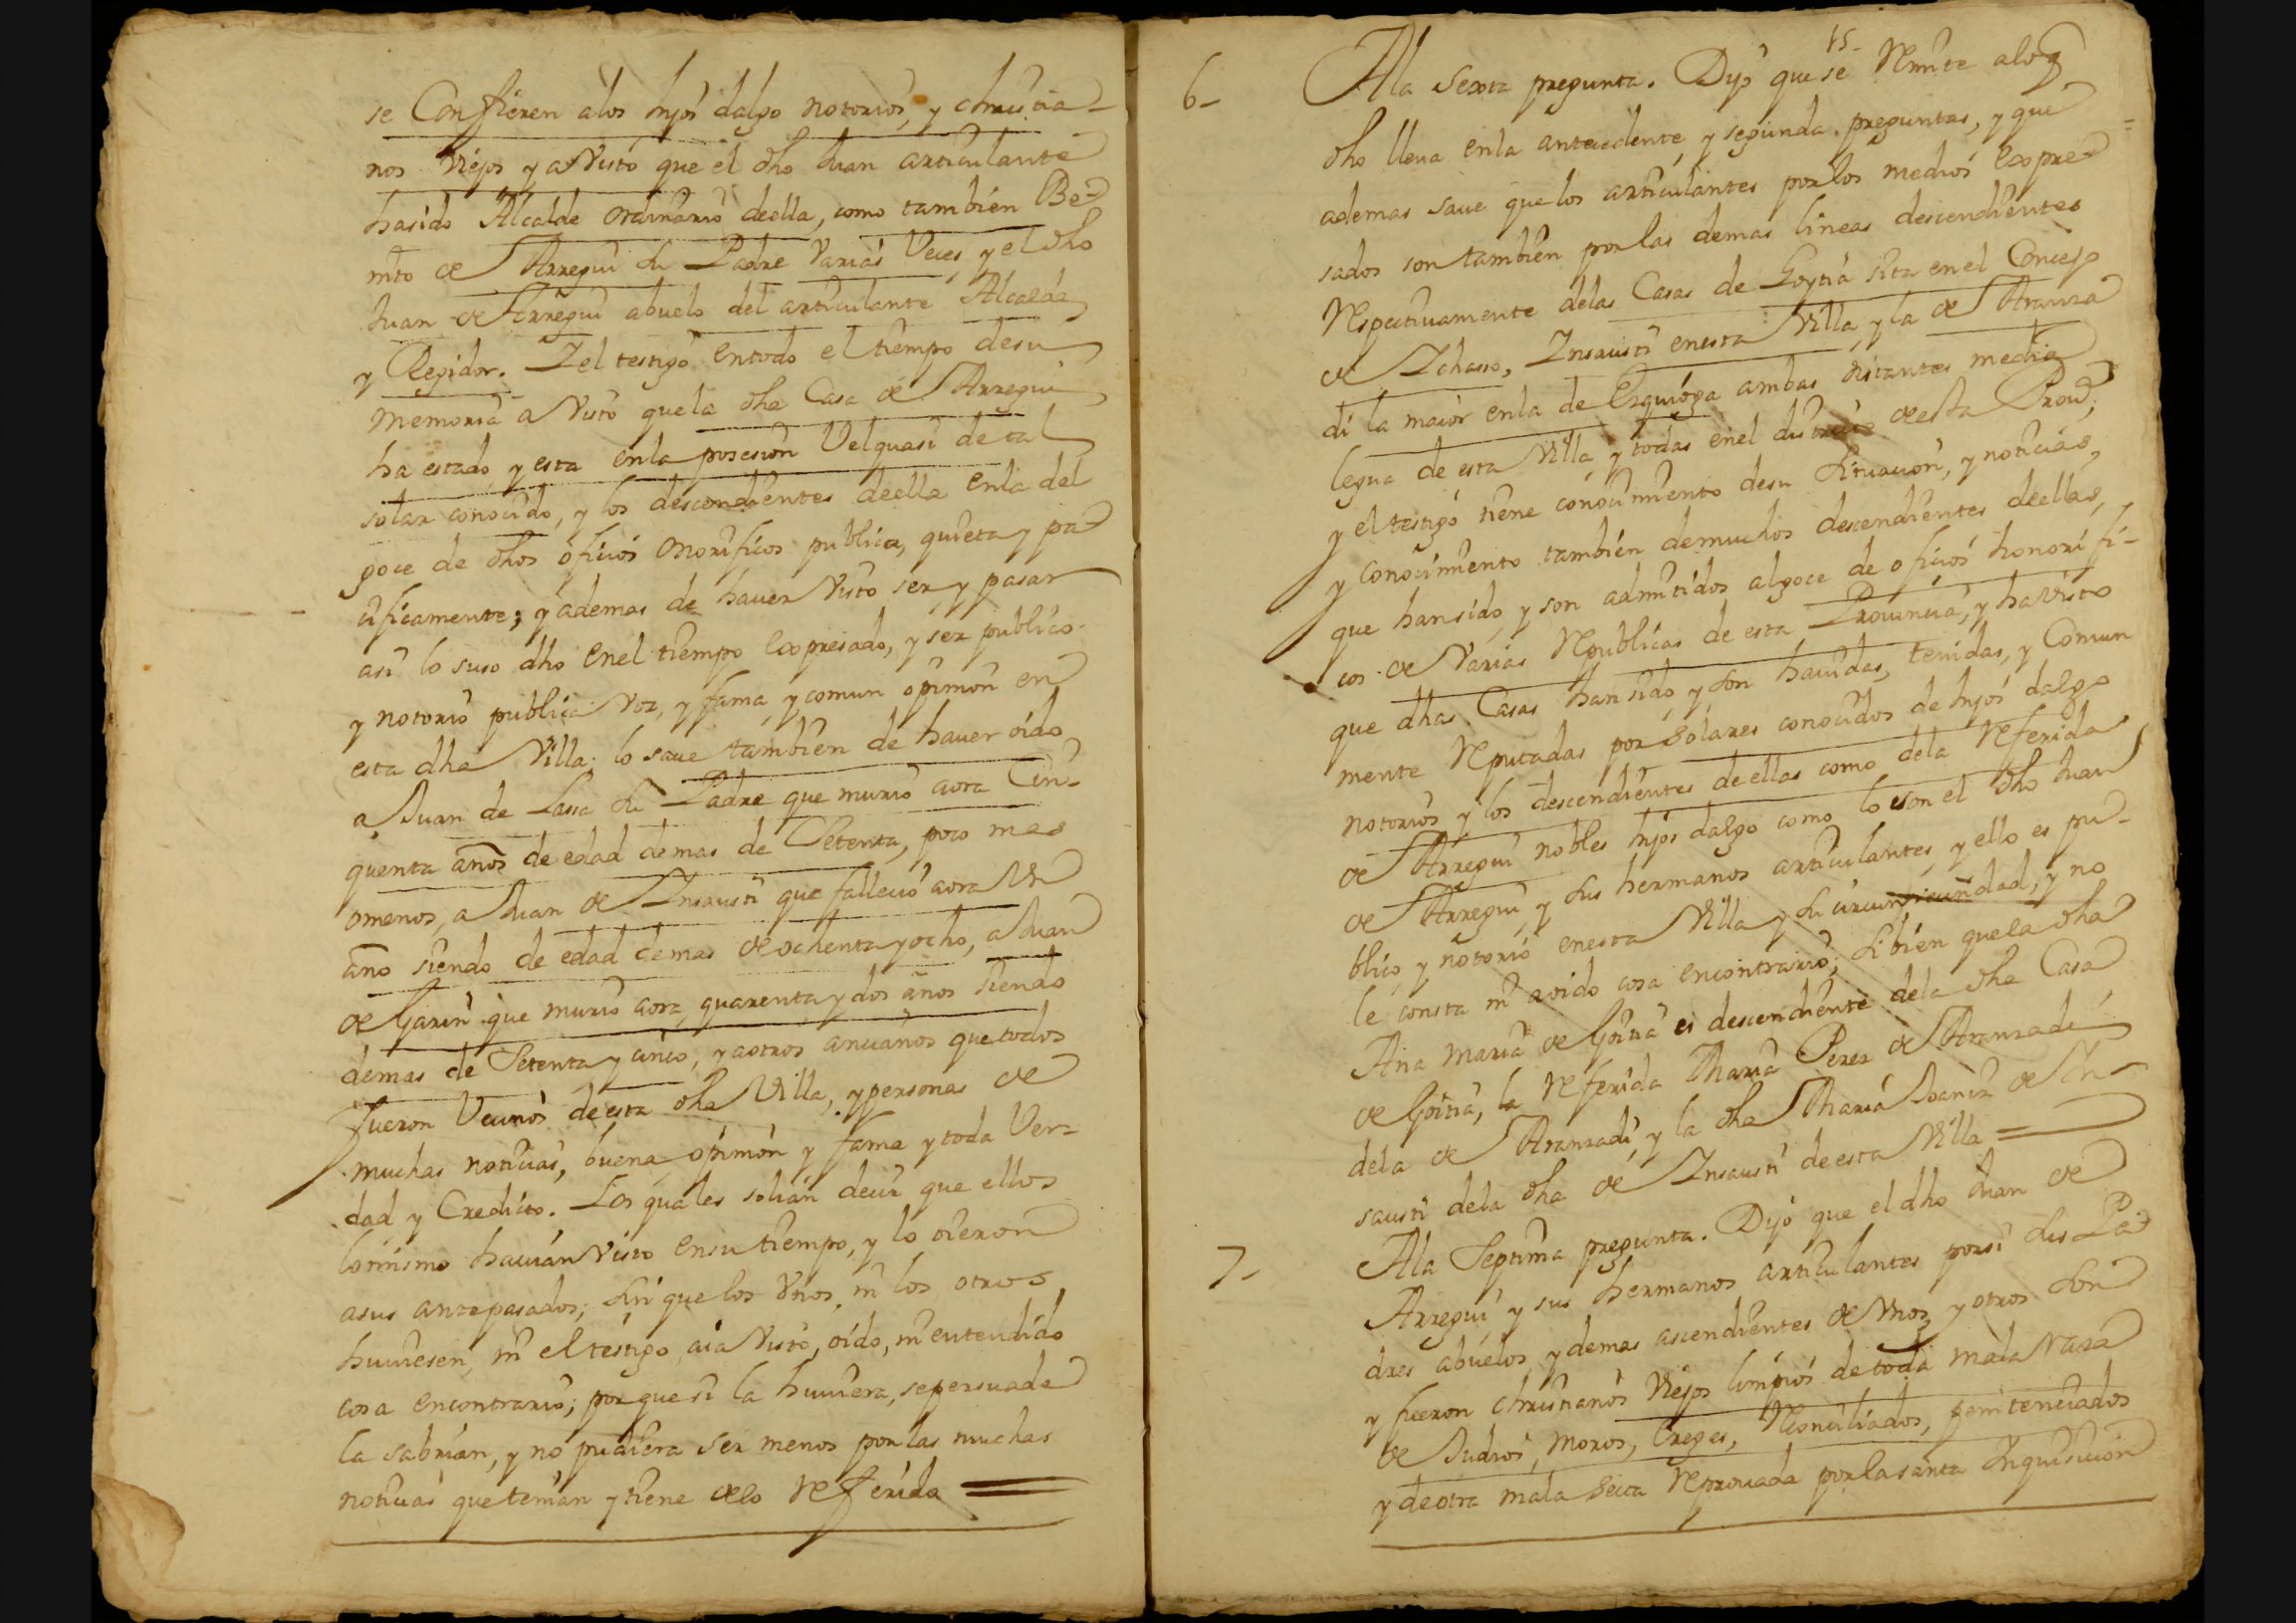 se Confieren alos hijos dalgo notorios, y christia-
nos viejos y a visto que el dho Juan articulante
hasido Alcalde ordinario deella, como tambien Be-
nito de Arregui su Padre varias veces, y el dho
Juan de Arregui abuelo del articulante Alcalde
y Regidor. Y el testigo entodo el tiempo desu
memoria a visto quela dha Casa de Arregui
ha estado, y esta enla posesion velquasi de tal
solar conocido, y los descendientes deella enla del
goce de dhos oficios onorificos publica, quieta y pa-
cificamente; y ademas de haver visto ser y pasar
asi lo suso dho enel tiempo expresado, y ser publico
y notorio publica voz, y fama, y comun opinion en
esta dha Villa; lo save tambien de haver oido
a Juan de Lassa su Padre que murio aora Cin-
quenta años de edad demas de Setenta, poco mas
omenos, a Juan de Insausti que fallecio aora un
año siendo de edad demas de ochenta y ocho, a Juan
de Garin que murio aora quarenta y dos años siendo
demas de Setenta y cinco, y aotros ancianos que todos
fueron Vecinos de esta dha Villa, y personas de
muchas noticias, buena opinion y fama y toda Ver-
dad y Credito. Los quales solian decir que ellos
lo mismo havian visto ensu tiempo, y lo oieron
asus antepasados; sin que los unos, ni los otros
huviesen, ni el testigo aia visto, oido, ni entendido
cosa encontrario; porque si la huviera, sepersuade
la sabrian, y no pudiera ser menos por las muchas
noticias que tenian y tiene delo referido =
15-
6- Ala sexta pregunta. Dijo que se remite aloq
dho lleva enla antecedente, y segunda preguntas, y que
ademas save que los articulantes por los medios expre-
sados son tambien por las demas lineas descendientes
respectivamente delas Casas de Goytia sita enel Concejo
de Ichasso, Insausti enesta Villa, y la de Aranza
di la maior enla de Ezquioga ambas distantes media
legua de esta Villa, y todas enel distrito deesta Prova;
y el testigo tiene conocimiento desu situacion, y noticias,
y conocimiento tambien demuchos descendientes deellas,
que hansido, y son admitidos algoce de oficios honorifi-
cos de varias republicas de esta Provincia, y havisto
que dhas Casas hansido, y son havidas, tenidas, y Comun
mente reputadas por solares conocidos de hijos dalgo
notorios y los descendientes deellas como dela referida
de Arregui nobles hijos dalgo como lo son el dho Juan
de Arregui y sus hermanos articulantes, y ello es pu-
blico, y notorio enesta Villa y su circunvicindad, y no
le consta ni aoido cosa encontrario; si bien quela dha
Ana Maria de Goitia es descendiente dela dha Casa
de Goitia, la referida Maria Perez de Aranzadi
dela de Aranzadi, y la dha Maria Joaniz de In-
sausti dela dha de Insausti deesta Villa =
7- Ala Septima pregunta. Dijo que el dho Juan de
Arregui y sus hermanos articulantes porsi sus Pa-
dres abuelos, y demas ascendientes de unos, y otros son
y fueron christianos viejos limpios de toda mala raza
de Judios, moros, Ereges, reconciliados, penitenciados
y de otra mala secta reprovada por la santa Inquisicion